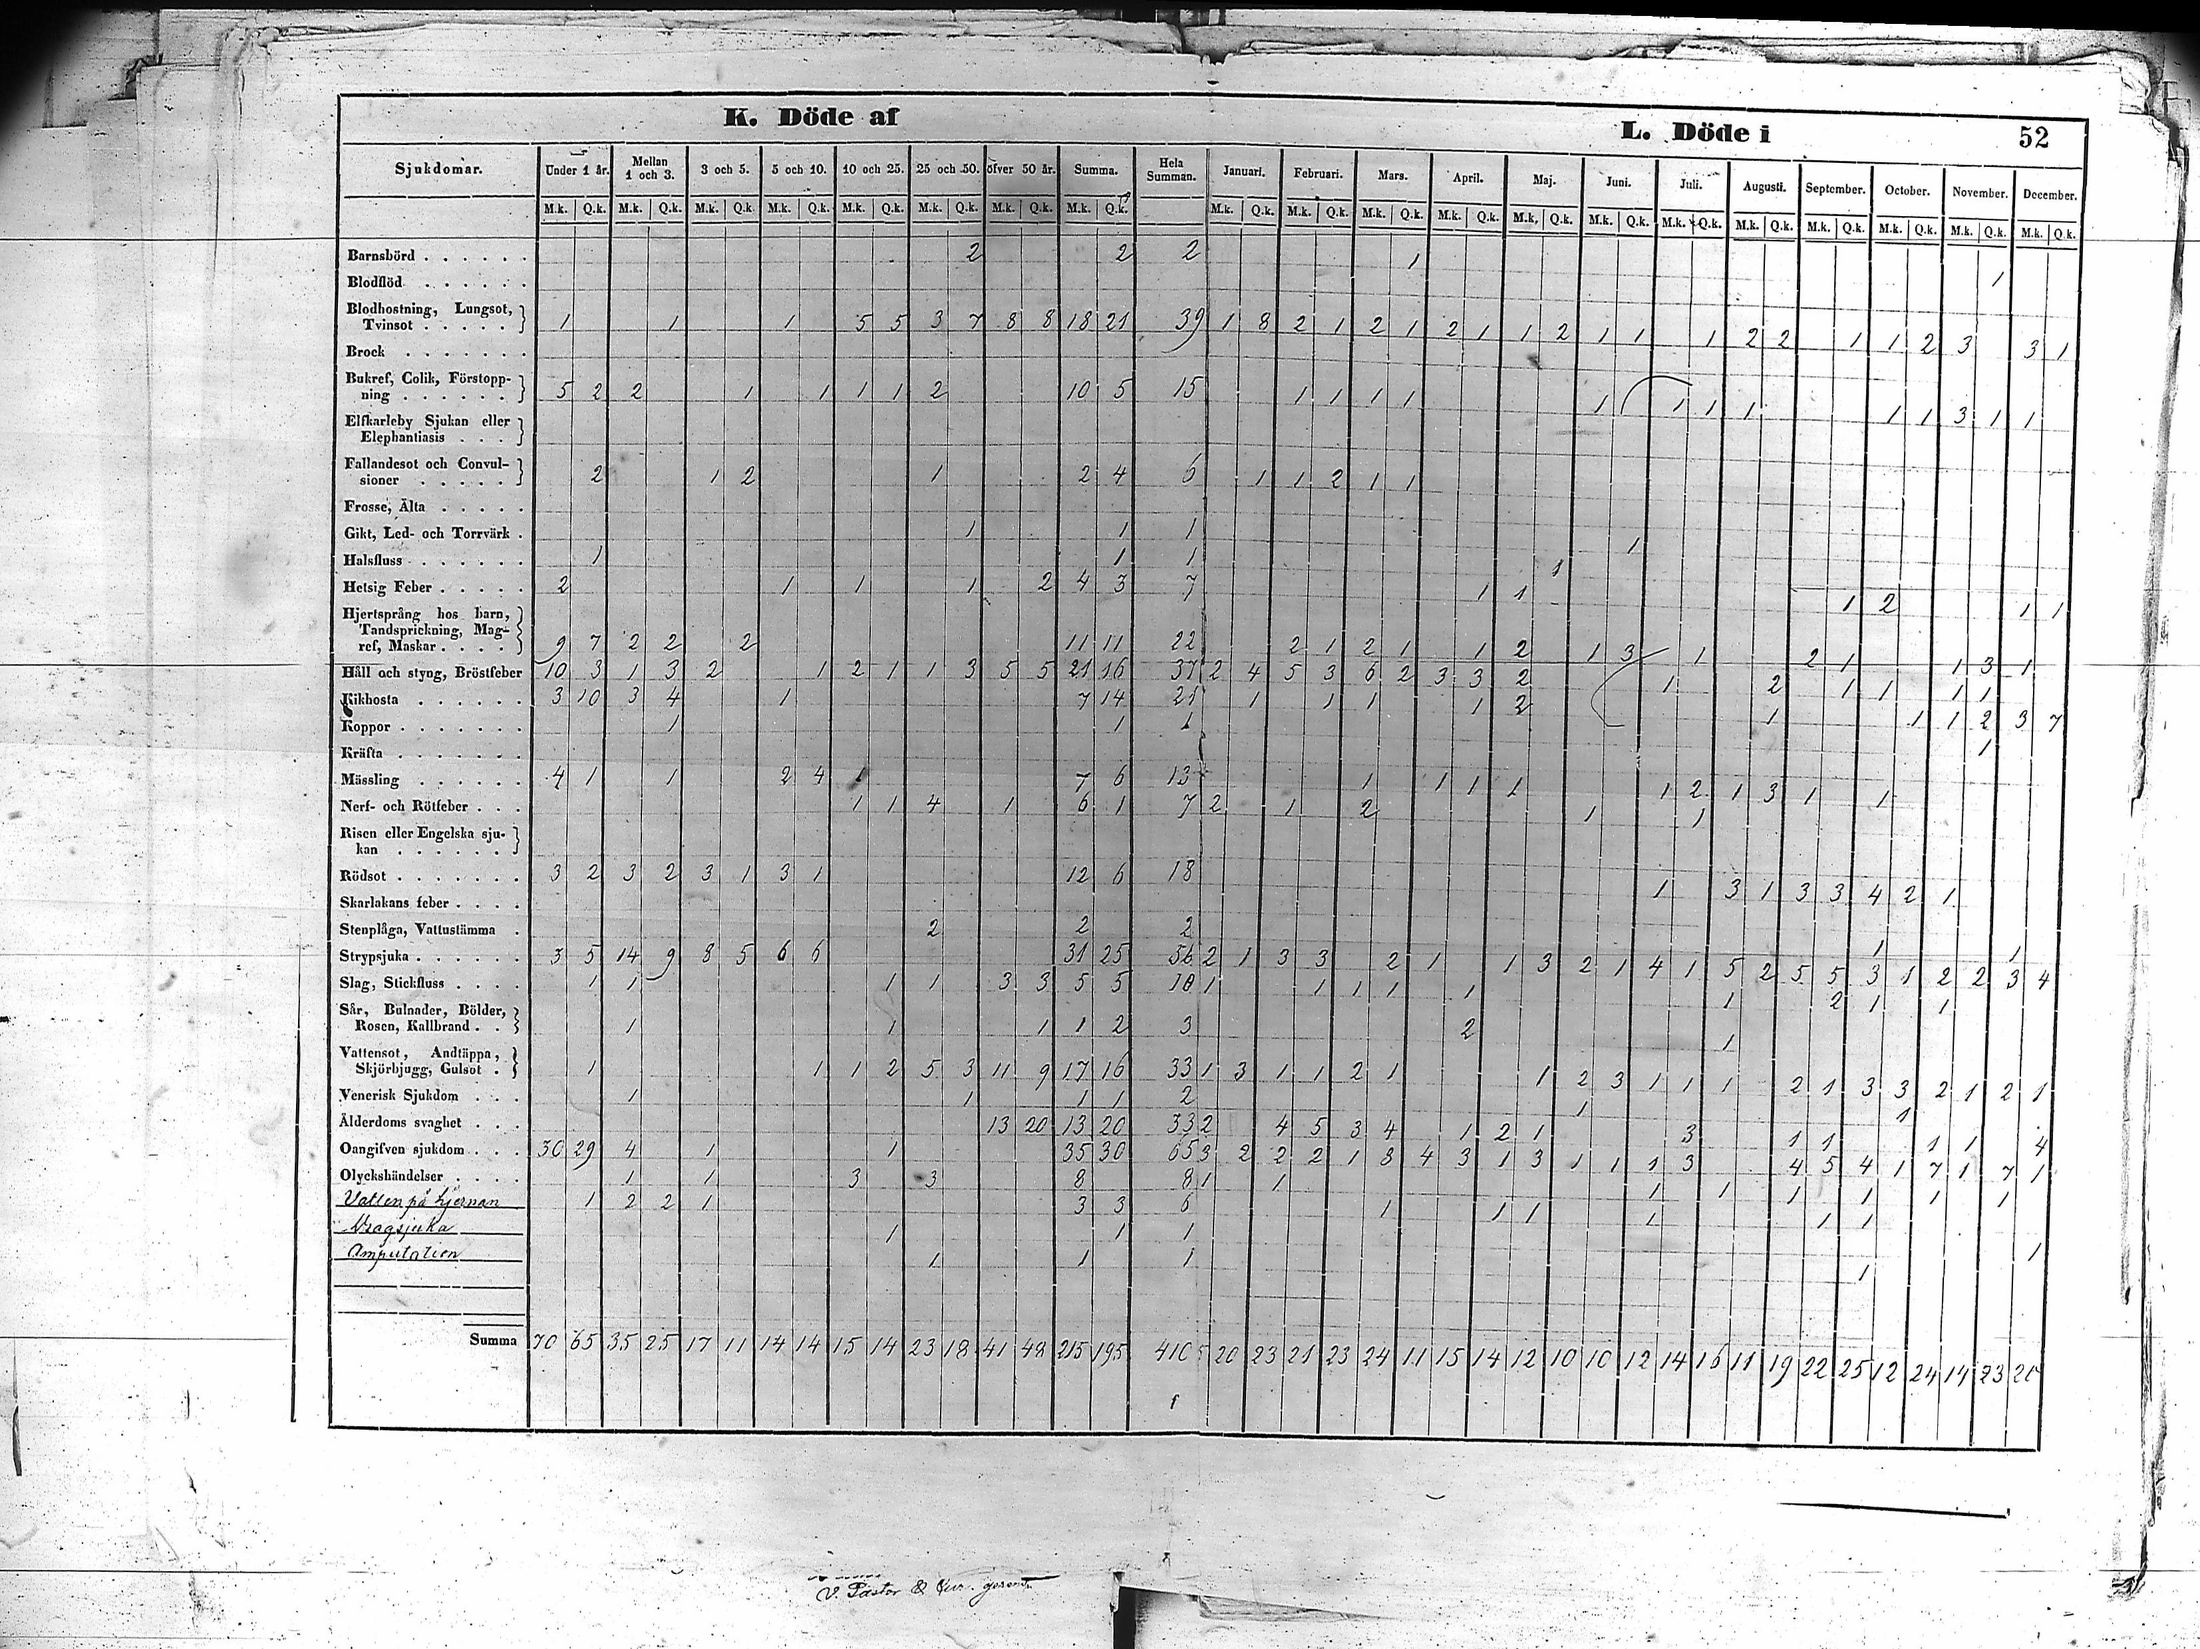 K. Döde af
L. Döde i
52
Sjukdomar. Under 1 år. Mellan 1 och 3. 3 och 5. 5 och 10. 10 och 25. 25 och 50. öfver 50 år. Summa. Hela Summan. Januari. Februari. Mars. April. Maj. Juni. Juli. Augusti. September. October. November. December.
M.k. Q.k. M.k. Q.k. M.k. Q.k. M.k. Q.k. M.k. Q.k. M.k. Q.k. M.k. Q.k. M.k. Q.k. M.k. Q.k. M.k. Q.k. M.k. Q.k. M.k. Q.k. M.k. Q.k. M.k. Q.k. M.k. Q.k. M.k. Q.k. M.k. Q.k. M.k. Q.k. M.k. Q.k. M.k. Q.k.
Barnsbörd . . . . . . 2 2 2 1 1
Blodflöd . . . . . .
Blodhostning, Lungsot,
Tvinsot . . . . . 1 1 1 5 5 3 7 8 8 18 21 39 1 8 2 1 2 1 2 1 1 2 1 1 1 2 2 1 1 2 3 3 1
Brock . . . . . . .
Bukref, Colik, Förstopp-
ning . . . . . . 5 2 2 1 1 1 1 2 10 5 15 1 1 1 1 1 1 1 1 1 1 3 1 1
Elfkarleby Sjukan eller
Elephantiasis . . .
Fallandesot och Convul-
sioner . . . . . 2 1 2 1 2 4 6 1 1 2 1 1
Frosse, Älta . . . . .
Gikt, Led- och Torrvärk . 1 1 1 1
Halsfluss . . . . . . 1 1 1 1
Hetsig Feber . . . . . 2 1 1 1 2 4 3 7 1 1 1 2 1 1
Hjertsprång hos barn,
Tandsprickning, Mag-
ref, Maskar . . . . 9 7 2 2 2 11 11 22 2 1 2 1 1 2 1 3 1 2 1 1 3 1
Håll och styng, Bröstfeber 10 3 1 3 2 1 2 1 1 3 5 5 21 16 37 2 4 5 3 6 2 3 3 2 1 2 1 1 1 1
Kikhosta . . . . . . 3 10 3 4 1 7 14 21 1 1 1 1 2 1 1 1 2 3 7
Koppor . . . . . . . 1 1 1 1
Kräfta . . . . . . .
Mässling . . . . . . 4 1 1 2 4 1 7 6 13 1 1 1 1 1 2 1 3 1 1
Nerf- och Rötfeber . . . 1 1 4 1 6 1 7 2 1 2 1 1
Risen eller Engelska sju-
kan . . . . . .
Rödsot . . . . . . . 3 2 3 2 3 1 3 1 12 6 18 1 3 1 3 3 4 2 1
Skarlakans feber . . . .
Stenplåga, Vattustämma . 2 2 2 1 1
Strypsjuka . . . . . . 3 5 14 9 8 5 6 6 31 25 56 2 1 3 3 2 1 1 3 2 1 4 1 5 2 5 5 3 1 2 2 3 4
Slag, Stickfluss . . . . 1 1 1 1 3 3 5 5 10 1 1 1 1 1 1 2 1 1
Sår, Bulnader, Bölder,
Rosen, Kallbrand . . 1 1 1 1 2 3 2 1
Vattensot, Andtäppa,
Skjörbjugg, Gulsot . 1 1 1 2 5 3 11 9 17 16 33 1 3 1 1 2 1 1 2 3 1 1 1 2 1 3 3 2 1 2 1
Venerisk Sjukdom . . . 1 1 1 1 2 1 1
Ålderdoms svaghet . . . 13 20 13 20 33 2 4 5 3 4 1 2 1 3 1 1 1 1 4
Oangifven sjukdom . . . 30 29 4 1 1 35 30 65 3 2 2 2 1 8 4 3 1 3 1 1 1 3 4 5 4 1 7 1 7 1
Olyckshändelser . . . . 1 1 3 3 8 8 1 1 1 1 1 1 1 1
Vatten på hjernan 1 2 2 1 3 3 6 1 1 1 1 1 1
Dragsjuka 1 1 1 1
Amputation 1 1 1 1
Summa 70 65 35 25 17 11 14 14 15 14 23 18 41 48 215 195 410 20 23 21 23 24 11 15 14 12 10 10 12 14 16 11 19 22 25 12 24 14 23 20
V. Pastor &